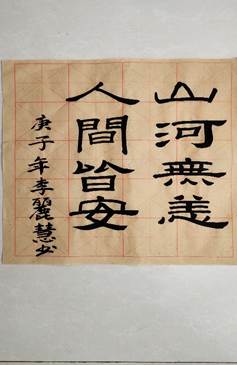 山河無恙
人間皆安
庚子年李麗慧书